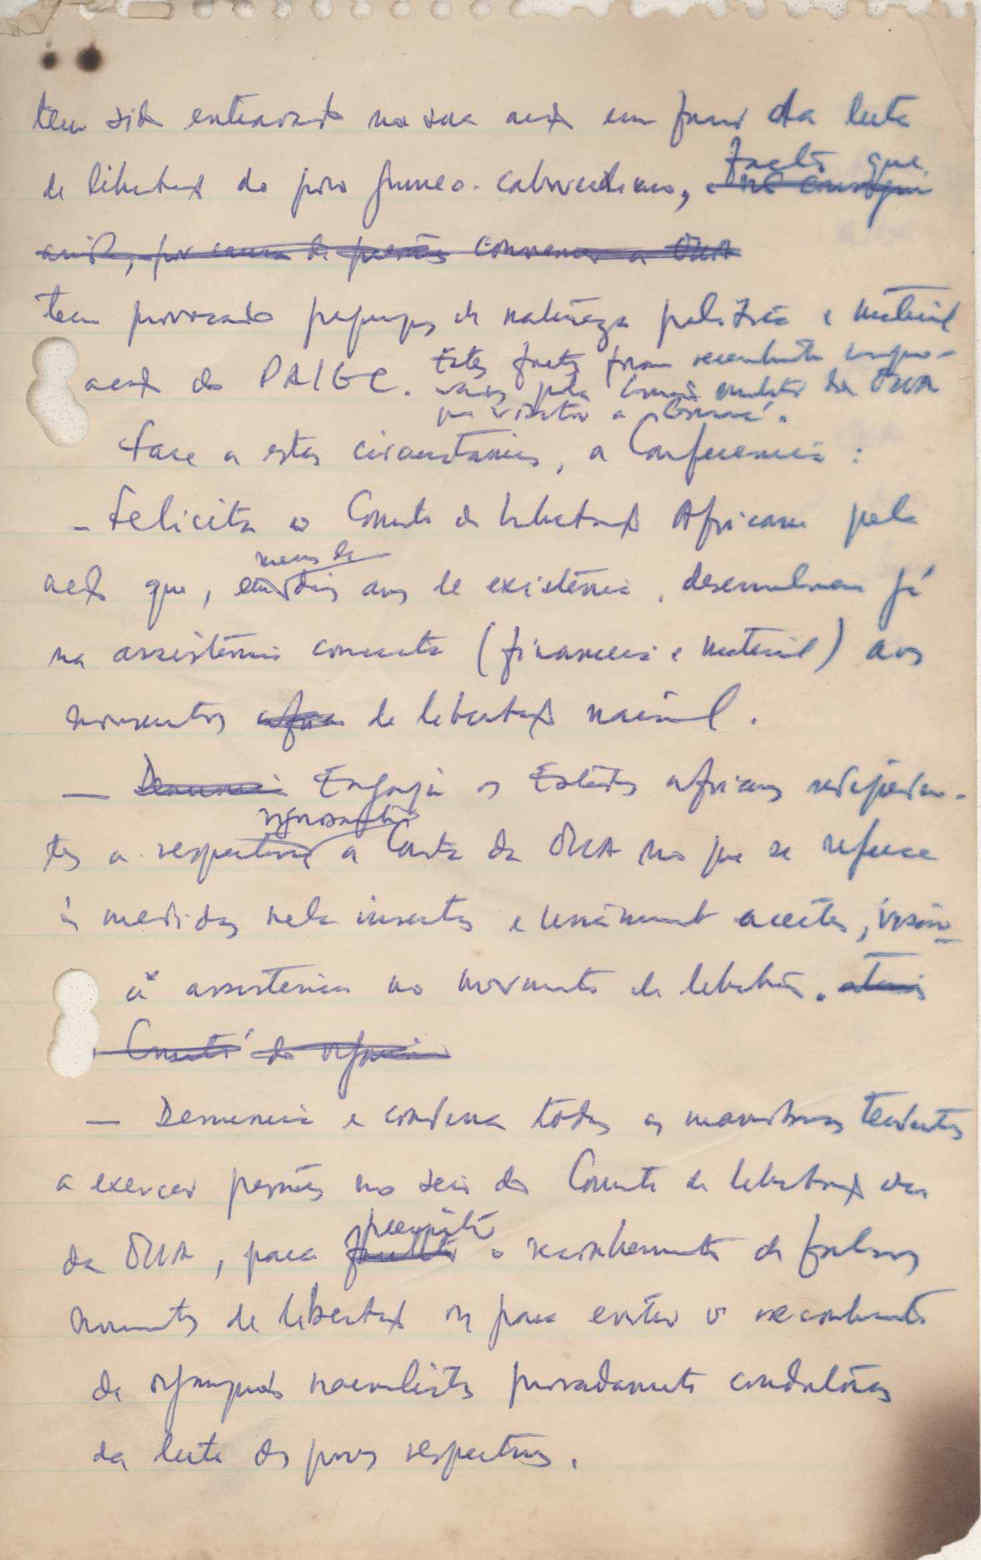 tem sido entravado na sua acção em favor da luta
de libertação do povo guineo-caboverdiano, facto que
ainda, por causa de pressões convencer a OUA
tem provocado prejuízos de natureza política e material
acção do PAIGC. Estes factos foram recentemente
pela militar da OUA
que visitou a
Face a estas circunstâncias, a Conferência:
- Felicita o Comité de Libertação Africano pela
acção que, em menos de dois anos de existência, desenvolveu já
na assistência concreta (financeira e material) aos
movimentos de libertação nacional.
- Denuncia Engaja os Estados africanos independen-
tes a respeitarem a Carta da OUA no que se refere
às medidas nela insertas e unanimemente aceites,
à assistência ao movimento de libertação.
Comité de
- Denuncia e condena todas as manobras tendentes
a exercer pressões no seio do Comité de Libertação
da OUA, para o reconhecimento de falsos
movimentos de libertação ou para evitar o reconhecimento
de organizações nacionalistas provadamente condutoras
da luta dos povos respectivos.